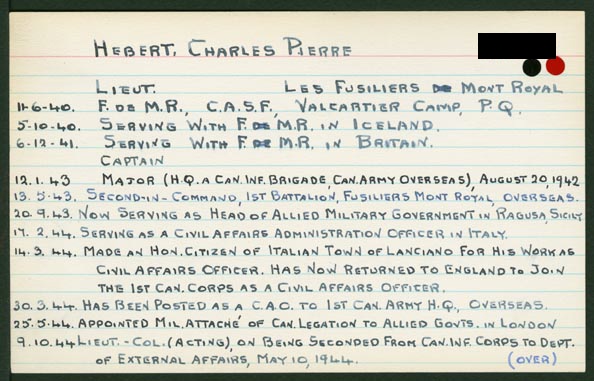 HEBERT, CHARLES PIERRE
LIEUT. LES FUSILIERS DE MONT ROYAL
11-6-40. F. DE M.R., C.A.S.F., VALCARTIER CAMP, P.Q.
5-10-40. SERVING WITH F. DE M.R. IN ICELAND.
6-12-41. SERVING WITH F. DE M.R. IN BRITAIN.
CAPTAIN
12.1.43 MAJOR (H.Q. A CAN. INF. BRIGADE, CAN. ARMY OVERSEAS), AUGUST 20, 1942
13.5.43. SECOND-IN-COMMAND, 1ST BATTALION, FUSILIERS MONT ROYAL, OVERSEAS.
20.9.43. NOW SERVING AS HEAD OF ALLIED MILITARY GOVERNMENT IN RAGUSA, SICILY
17.2.44. SERVING AS A CIVIL AFFAIRS ADMINISTRATION OFFICER IN ITALY.
14.3.44. MADE AN HON. CITIZEN OF ITALIAN TOWN OF LANCIANO FOR HIS WORK AS
CIVIL AFFAIRS OFFICER. HAS NOW RETURNED TO ENGLAND TO JOIN
THE 1ST CAN. CORPS AS A CIVIL AFFAIRS OFFICER.
30.3.44. HAS BEEN POSTED AS A C.A.O. TO 1ST CAN. ARMY H.Q., OVERSEAS.
25.5.44. APPOINTED MIL. ATTACHÉ OF CAN. LEGATION TO ALLIED GOVTS. IN LONDON
9.10.44 LIEUT.-COL. (ACTING), ON BEING SECONDED FROM CAN. INF. CORPS TO DEPT.
OF EXTERNAL AFFAIRS, MAY 10, 1944. (OVER)